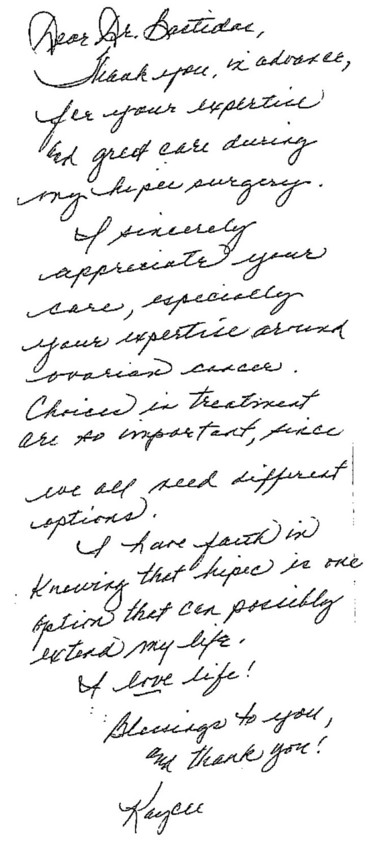 Dear Dr. Bastidas,
Thank you, in advance,
for your expertise
and great care during
my hipec surgery.
I sincerely
appreciate your
care, especially
your expertise around
ovarian cancer.
Choices in treatment
are so important, since
we all need different
options.
I have faith in
knowing that hipec is one
option that can possibly
extend my life.
I love life!
Blessings to you,
and thank you!
Kaycee